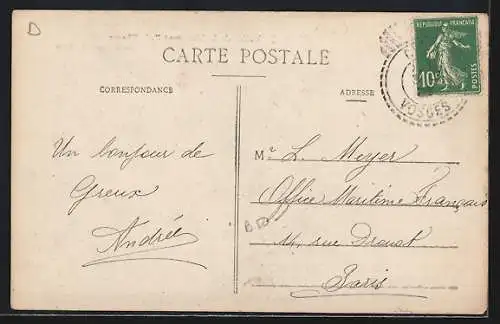 D
CARTE POSTALE
REPUBLIQUE FRANÇAISE
10c
POSTES
VOSGES
CORRESPONDANCE
ADRESSE
Un bonjour de
Greux
André
Mr L. Meyer
Office Maritime Français
14, rue Drouot
Paris